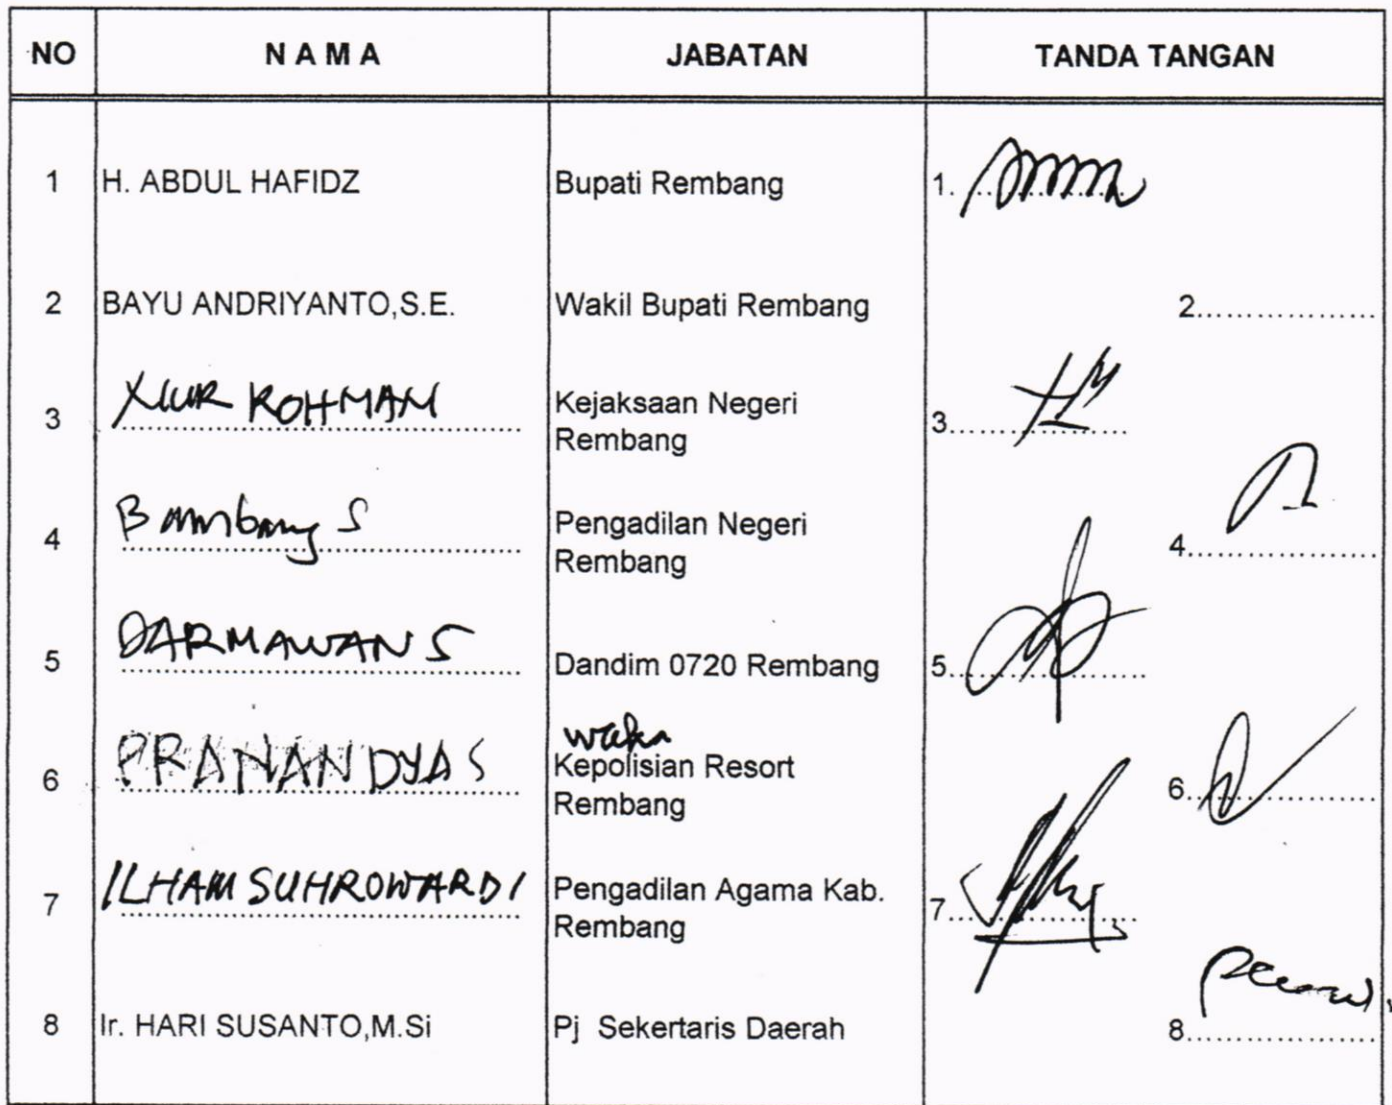 NO NAMA JABATAN TANDA TANGAN
1 H. ABDUL HAFIDZ Bupati Rembang 1.
2 BAYU ANDRIYANTO,S.E. Wakil Bupati Rembang 2.................
3 NUR ROHMAN Kejaksaan Negeri 3.................
Rembang
4 Bambang S Pengadilan Negeri 4.................
Rembang
5 DARMAWAN S Dandim 0720 Rembang 5.................
waka
6 PRANANDYA S Kepolisian Resort 6.................
Rembang
7 ILHAM SUHROWARDI Pengadilan Agama Kab. 7.................
Rembang
8 Ir. HARI SUSANTO,M.Si Pj Sekertaris Daerah 8.................